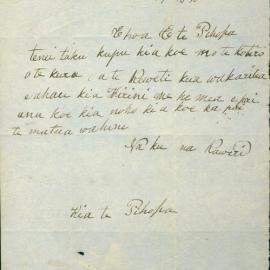 Ehoa E te Pihopa
tenei taku kupu kia koe mo te kotiro
o te kura a te Keweti kua wakaritia
e ahau kia Hirini me he mea e pai
ana koe kia noho kia koe ka pai
te matua wahine
Na ku na Rawiri
Kia te Pihopa